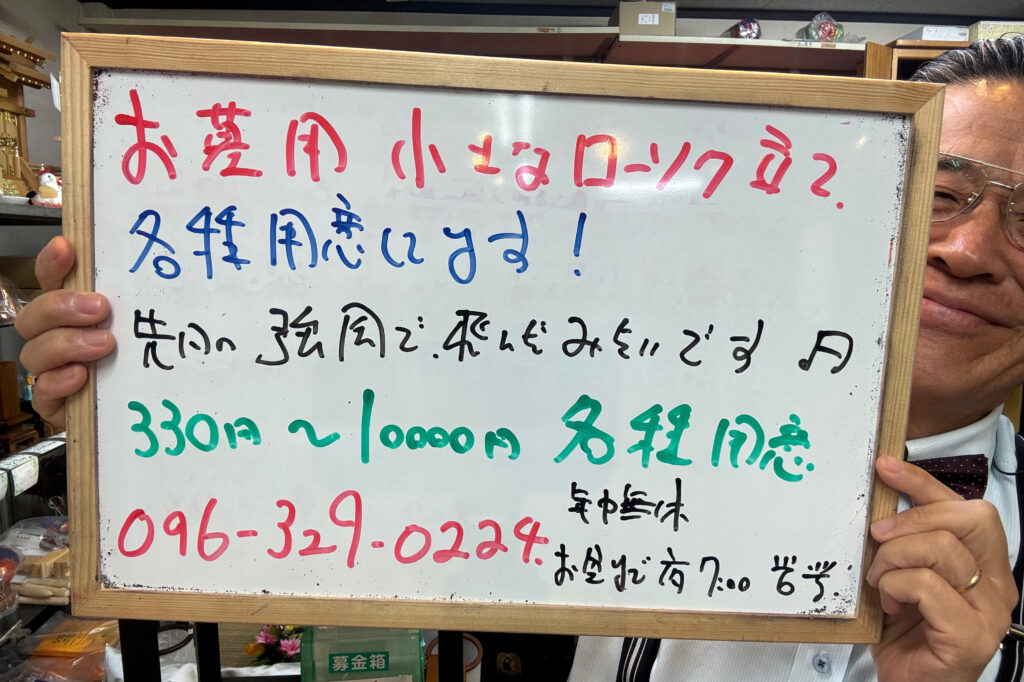 お墓用 小さなローソク立て.
各種用意してます!
先日の強風で.飛んだみたいです♫
330円～10000円 各種用意.
096-329-0224.
年中無休
お まで夜7:00
募金箱